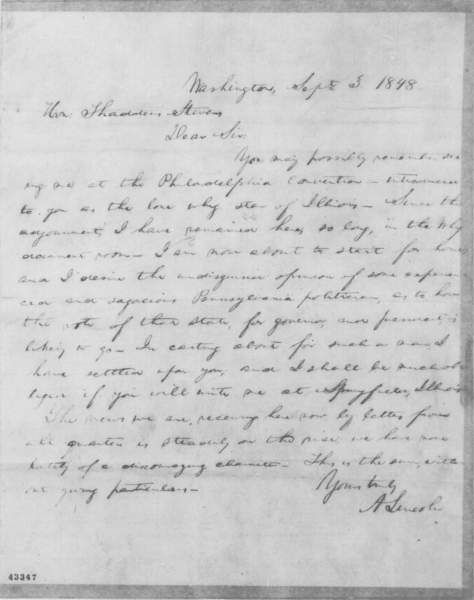 Washington, Sept 3 1848
Hon: Thaddeus Stevens
Dear Sir:
You may possibly remember see-
ing me at the Philadelphia Convention – introduced
to you as the lone whig star of Illinois – Since the
adjournment, I have remained here, so long, in the Whig
document room – I am now about to start for home;
and I desire the undisguised opinion of some experien-
ced and sagacious Pennsylvania politician, as to how
the vote of that state, for governor, and president, is
likely to go – In casting about for such a man, I
have settled upon you; and I shall be much ob-
liged if you will write me at Springfield, Illinois
The news we are receiving here now, by letters from
all quarters is steadily on the rise; we have none
lately of a discouraging character – This is the sum, with-
out giving particulars –
Yours truly
A Lincoln
43347